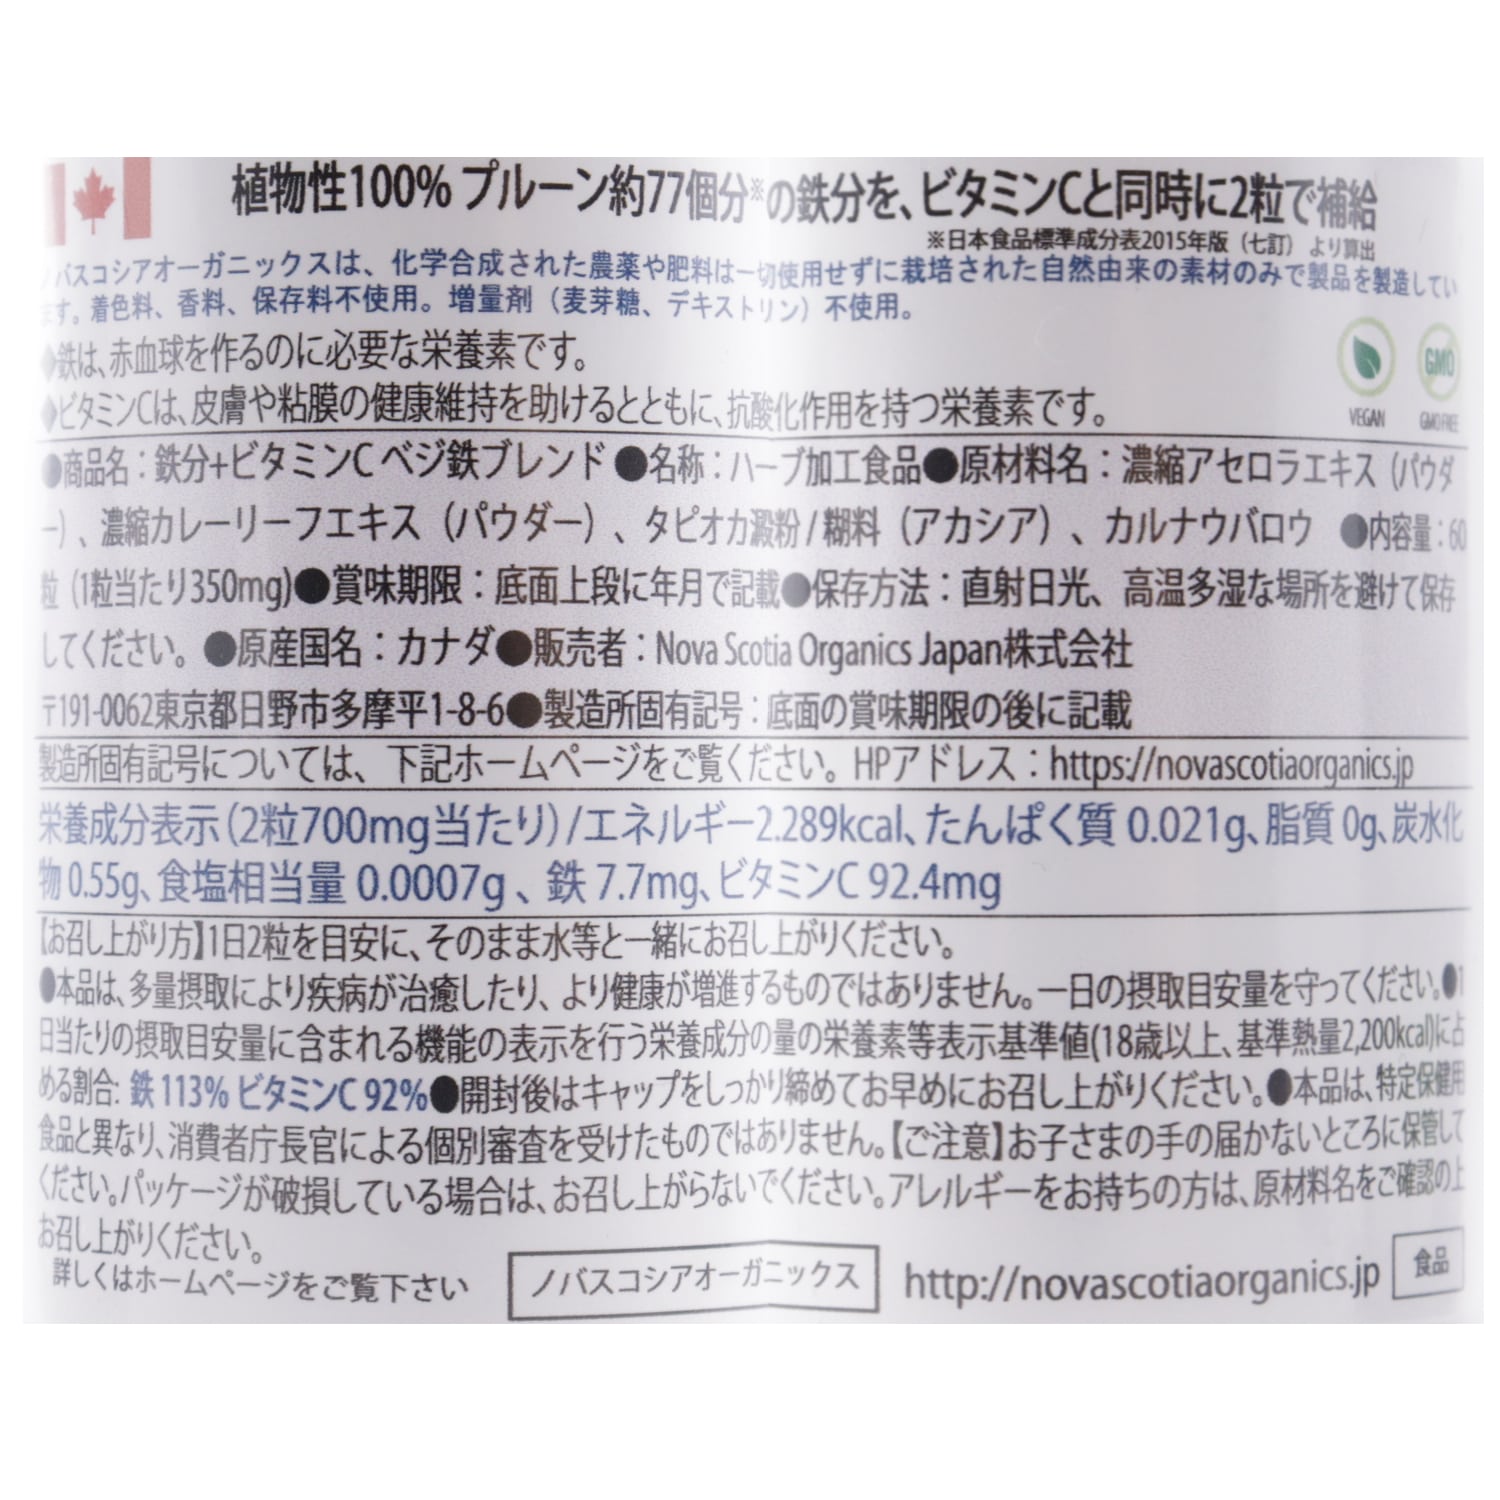 植物性100% プルーン約77個分※の鉄分を、ビタミンCと同時に2粒で補給
※日本食品標準成分表2015年版（七訂）より算出
ノバスコシアオーガニックスは、化学合成された農薬や肥料は一切使用せずに栽培された自然由来の素材のみで製品を製造してい
ます。着色料、香料、保存料不使用。増量剤（麦芽糖、デキストリン）不使用。
◆鉄は、赤血球を作るのに必要な栄養素です。
◆ビタミンCは、皮膚や粘膜の健康維持を助けるとともに、抗酸化作用を持つ栄養素です。
VEGAN
GMO
GMO FREE
●商品名：鉄分+ビタミンC ベジ鉄ブレンド●名称：ハーブ加工食品●原材料名：濃縮アセロラエキス（パウダ
ー）、濃縮カレーリーフエキス（パウダー）、タピオカ澱粉 / 糊料（アカシア）、カルナウバロウ ●内容量：60
粒（1粒当たり350mg)●賞味期限：底面上段に年月で記載●保存方法：直射日光、高温多湿な場所を避けて保存
してください。●原産国名：カナダ●販売者：Nova Scotia Organics Japan株式会社
〒191-0062東京都日野市多摩平1-8-6●製造所固有記号：底面の賞味期限の後に記載
製造所固有記号については、下記ホームページをご覧ください。HPアドレス：https://novascotiaorganics.jp
栄養成分表示（2粒700mg当たり）/エネルギー2.289kcal、たんぱく質 0.021g、脂質 0g、炭水化
物 0.55g、食塩相当量 0.0007g 、鉄 7.7mg、ビタミンC 92.4mg
【お召し上がり方】1日2粒を目安に、そのまま水等と一緒にお召し上がりください。
●本品は、多量摂取により疾病が治癒したり、より健康が増進するものではありません。一日の摂取目安量を守ってください。●1
日当たりの摂取目安量に含まれる機能の表示を行う栄養成分の量の栄養素等表示基準値(18歳以上、基準熱量2,200kcal)に占
める割合: 鉄 113% ビタミンC 92%●開封後はキャップをしっかり締めてお早めにお召し上がりください。●本品は、特定保健用
食品と異なり、消費者庁長官による個別審査を受けたものではありません。【ご注意】お子さまの手の届かないところに保管して
ください。パッケージが破損している場合は、お召し上がらないでください。アレルギーをお持ちの方は、原材料名をご確認の上
お召し上がりください。
詳しくはホームページをご覧下さい
ノバスコシアオーガニックス
http://novascotiaorganics.jp
食品